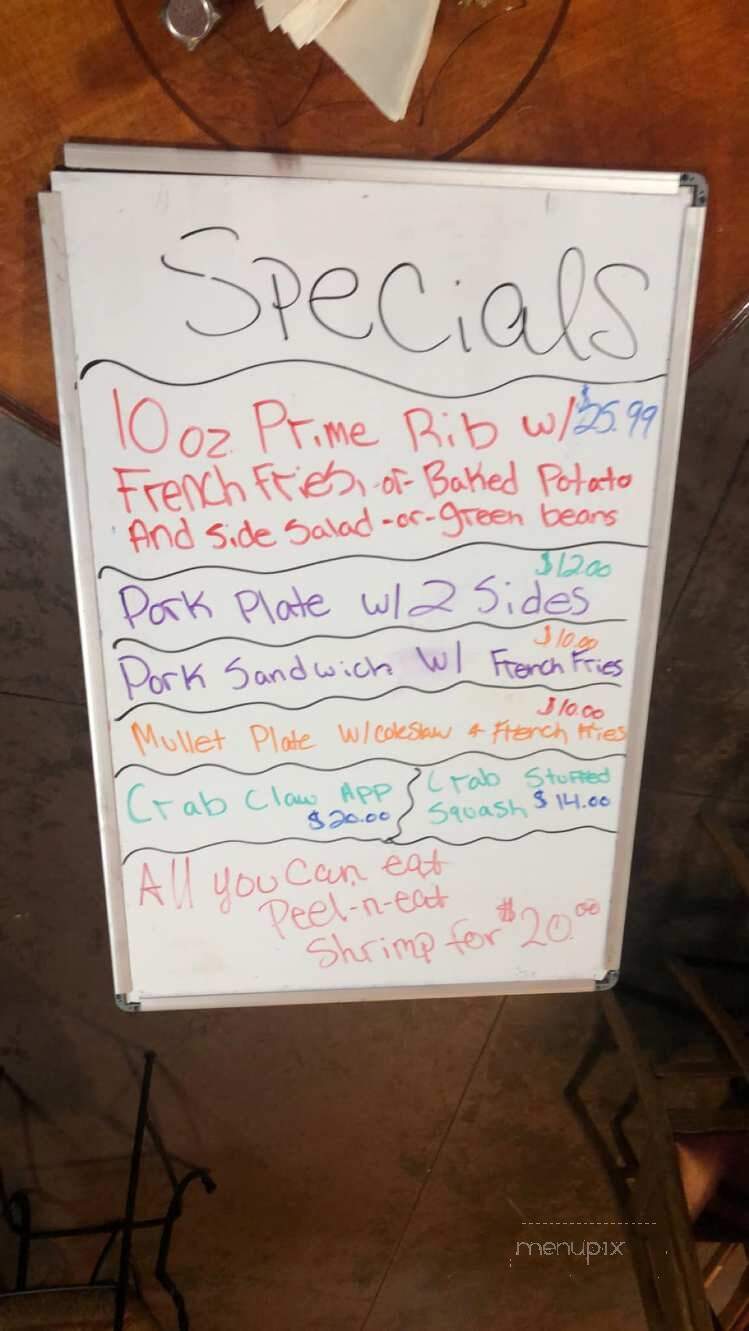 Specials
10 oz Prime Rib w/ $25.99
French Fries, -or- Baked Potato
And Side Salad -or- green beans
$12.00
Pork Plate w/ 2 Sides
$10.00
Pork Sandwich w/ French Fries
$10.00
Mullet Plate w/ coleslaw + French Fries
Crab Claw App
$20.00
Crab Stuffed
Squash $14.00
All you can eat
Peel-n-eat
Shrimp for $20.00
menupix